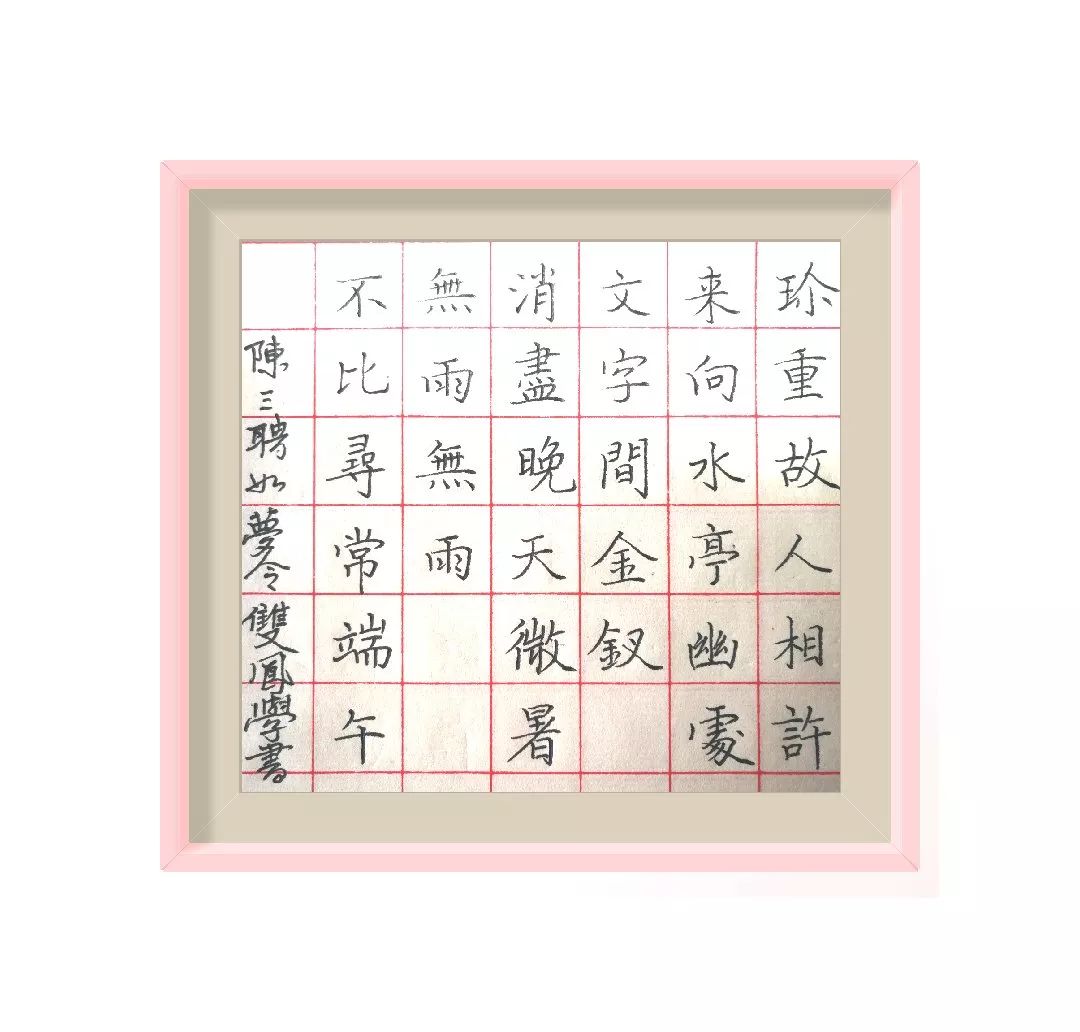 珎重故人相許
来向水亭幽處
文字間金釵
消盡晚天微暑
無雨無雨
不比尋常端午
陳三聘如夢令雙鳳學書